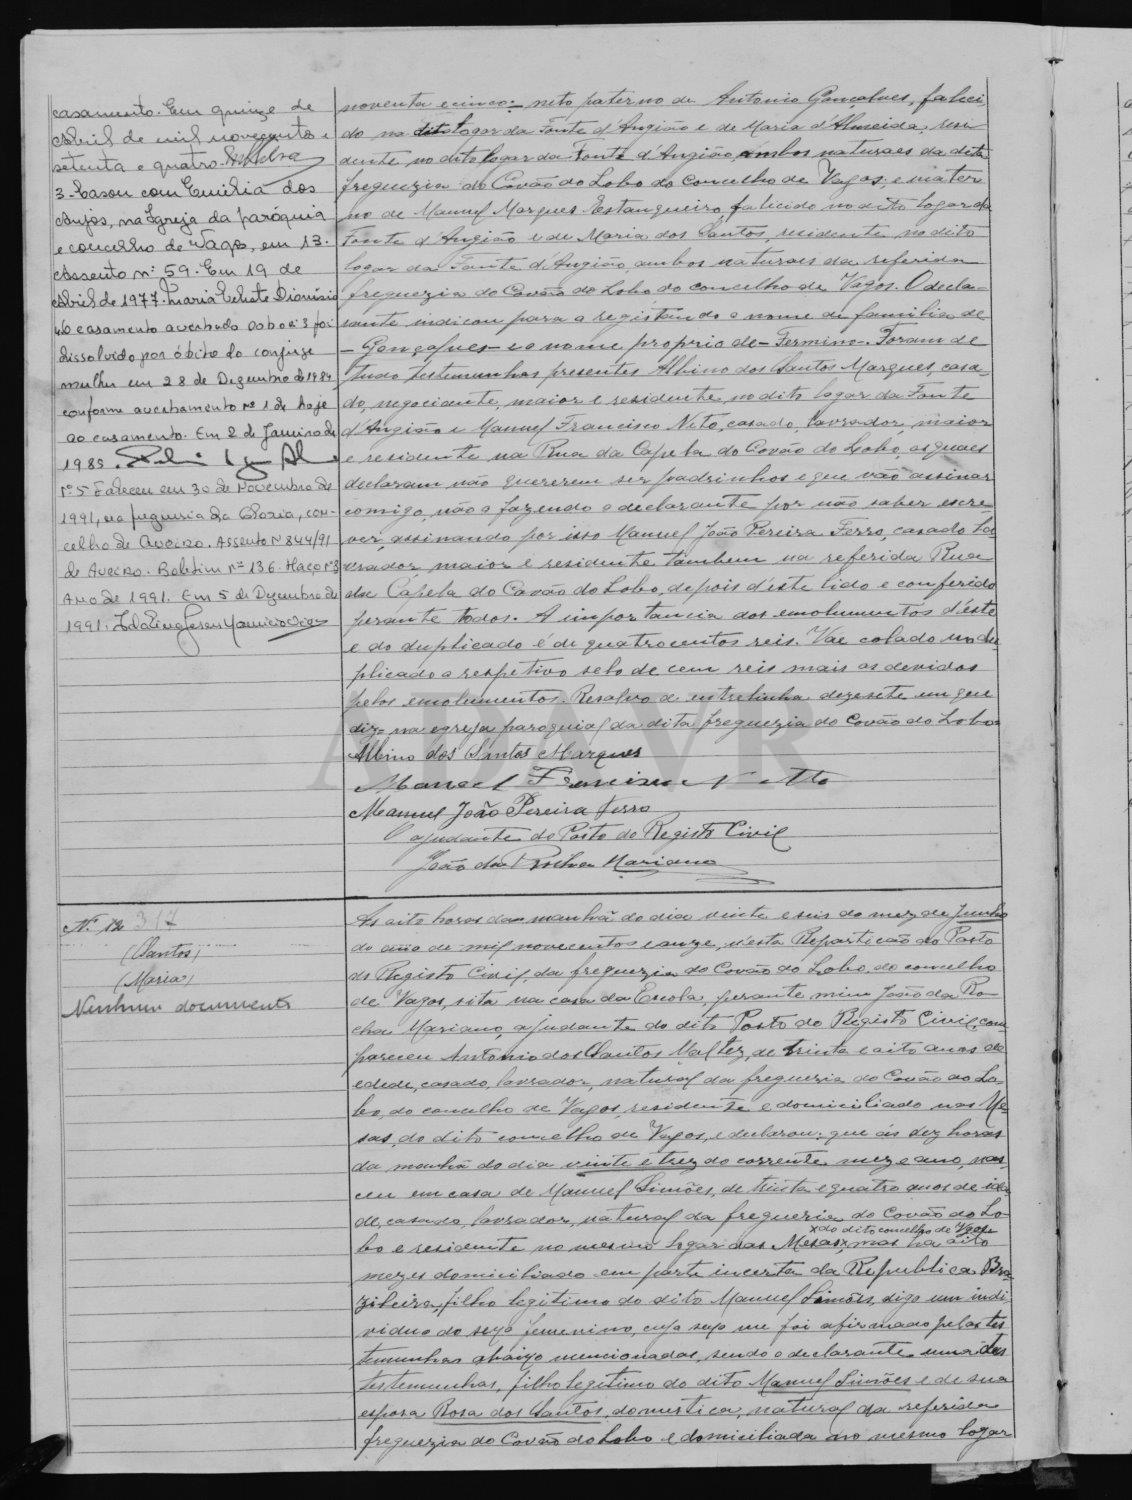 casamento. Em quinze de
Abril de mil novecentos e
setenta e quatro.
3- Casou com Emilia dos
Anjos, na Igreja da paróquia
e concelho de Vagos, em 13.
Assento nº 59. Em 19 de
Abril de 1977. Maria Celeste Dionisio
4º O casamento averbado sob o nº 3 foi
dissolvido por óbito do conjuge
mulher em 28 de Dezembro de 1984
conforme averbamento nº 1 de hoje
ao casamento. Em 2 de Janeiro de
1985.
Nº 5 Faleceu em 30 de Novembro de
1991, na freguesia da Gloria, con-
celho de Aveiro. Assento Nº 844/91
de Aveiro. Boletim nº 136. Maço nº 3
Ano de 1991. Em 5 de Dezembro de
1991.
noventa e cinco; neto paterno de Antonio Gonçalves, faleci
do no dito logar da Fonte d'Angião e de Maria d'Almeida, resi
dente no dito logar da Fonte d'Angião ambos naturaes da dita
freguezia do Covão do Lobo do concelho de Vagos; e mater
no de Manuel Marques Estangueiro, falecido no dito logar da
Fonte d'Angião e de Maria dos Santos, residente no dito
logar da Fonte d'Angião, ambos naturaes da referida
freguezia do Covão do Lobo do concelho de Vagos. O decla-
rante indicou para o registando o nome de familia de
- Gonçalves - e o nome proprio de - Fermino. Foram de
tudo testemunhas presentes Albino dos Santos Marques, casa-
do, negociante, maior e residente, no dito logar da Fonte
d'Angião e Manuel Francisco Neto, casado, lavrador, maior
e residente na Rua da Capela do Covão do Lobo, os quaes
declaram não quererem ser padrinhos e que vão assinar
comigo, não o fazendo o declarante por não saber escre-
ver, assinando por isso Manuel João Pereira Ferro, casado la
vrador, maior e residente tambem na referida Rua
da Capela do Covão do Lobo, depois d'este lido e conferido
perante todos. A importancia dos emolumentos d'este
e do duplicado é de quatrocentos reis. Vae colado no du
plicado o respetivo selo de cem reis mais os devidos
pelos emolumentos. Resalvo a entrelinha dezesete em que
diz= na egreja paroquial da dita freguezia do Covão do Lobo=
Albino dos Santos Marques
Manoel Francisco Netto
Manuel João Pereira Ferro
O ajudante do Posto do Registo Civil
João da Rocha Mariano
Nº 12 317
(Santos)
(Maria)
Nenhum documento
As oito horas da manhã do dia vinte e seis do mez de Junho
do ano de mil novecentos e onze, n'esta Repartição do Posto
do Registo Civil, da freguezia do Covão do Lobo, do concelho
de Vagos, sita na casa da Escola, perante mim João da Ro-
cha Mariano, ajudante do dito Posto do Registo Civil, com
pareceu Antonio dos Santos Maltez, de trinta e oito anos de
edade, casado, lavrador, natural da freguezia do Covão do Lo-
bo, do concelho de Vagos, residente e domiciliado nas Me-
sas, do dito concelho de Vagos, e declarou: que ás dez horas
da manhã do dia vinte e trez do corrente mez e ano, nas
ceu em casa de Manuel Simões, de trinta e quatro anos de ida
de, casado, lavrador, natural da freguezia do Covão do Lo-
x do dito concelho de Vagos
bo e residente no mesmo logar das Mesas x, mas ha oito
mezes domiciliado em parte incerta da Republica Bra
zileira, filho legitimo do dito Manuel Simões, digo um indi
viduo do sexo femenino, cujo sexo me foi afirmado pelas tes
temunhas abaixo mencionadas, sendo o declarante uma das
testemunhas, filho legitimo do dito Manuel Simões e de sua
esposa Rosa dos Santos, domestica, natural da referida
freguezia do Covão do Lobo e domiciliada no mesmo logar